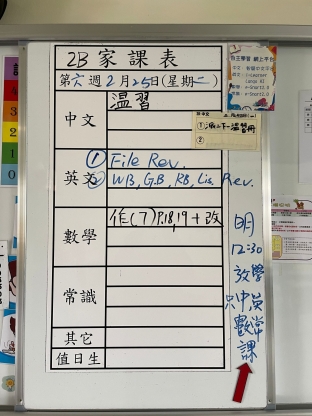 2B 家課表
第六週2月25日(星期二)
中文
溫習
英文
① File Rev.
② WB, G.B, RB, Lis. Rev.
數學
作(7)P.18,19 + 改
常識
其它
值日生
明
12:30
放學
只中英
數常
課
自主學習 網上平台